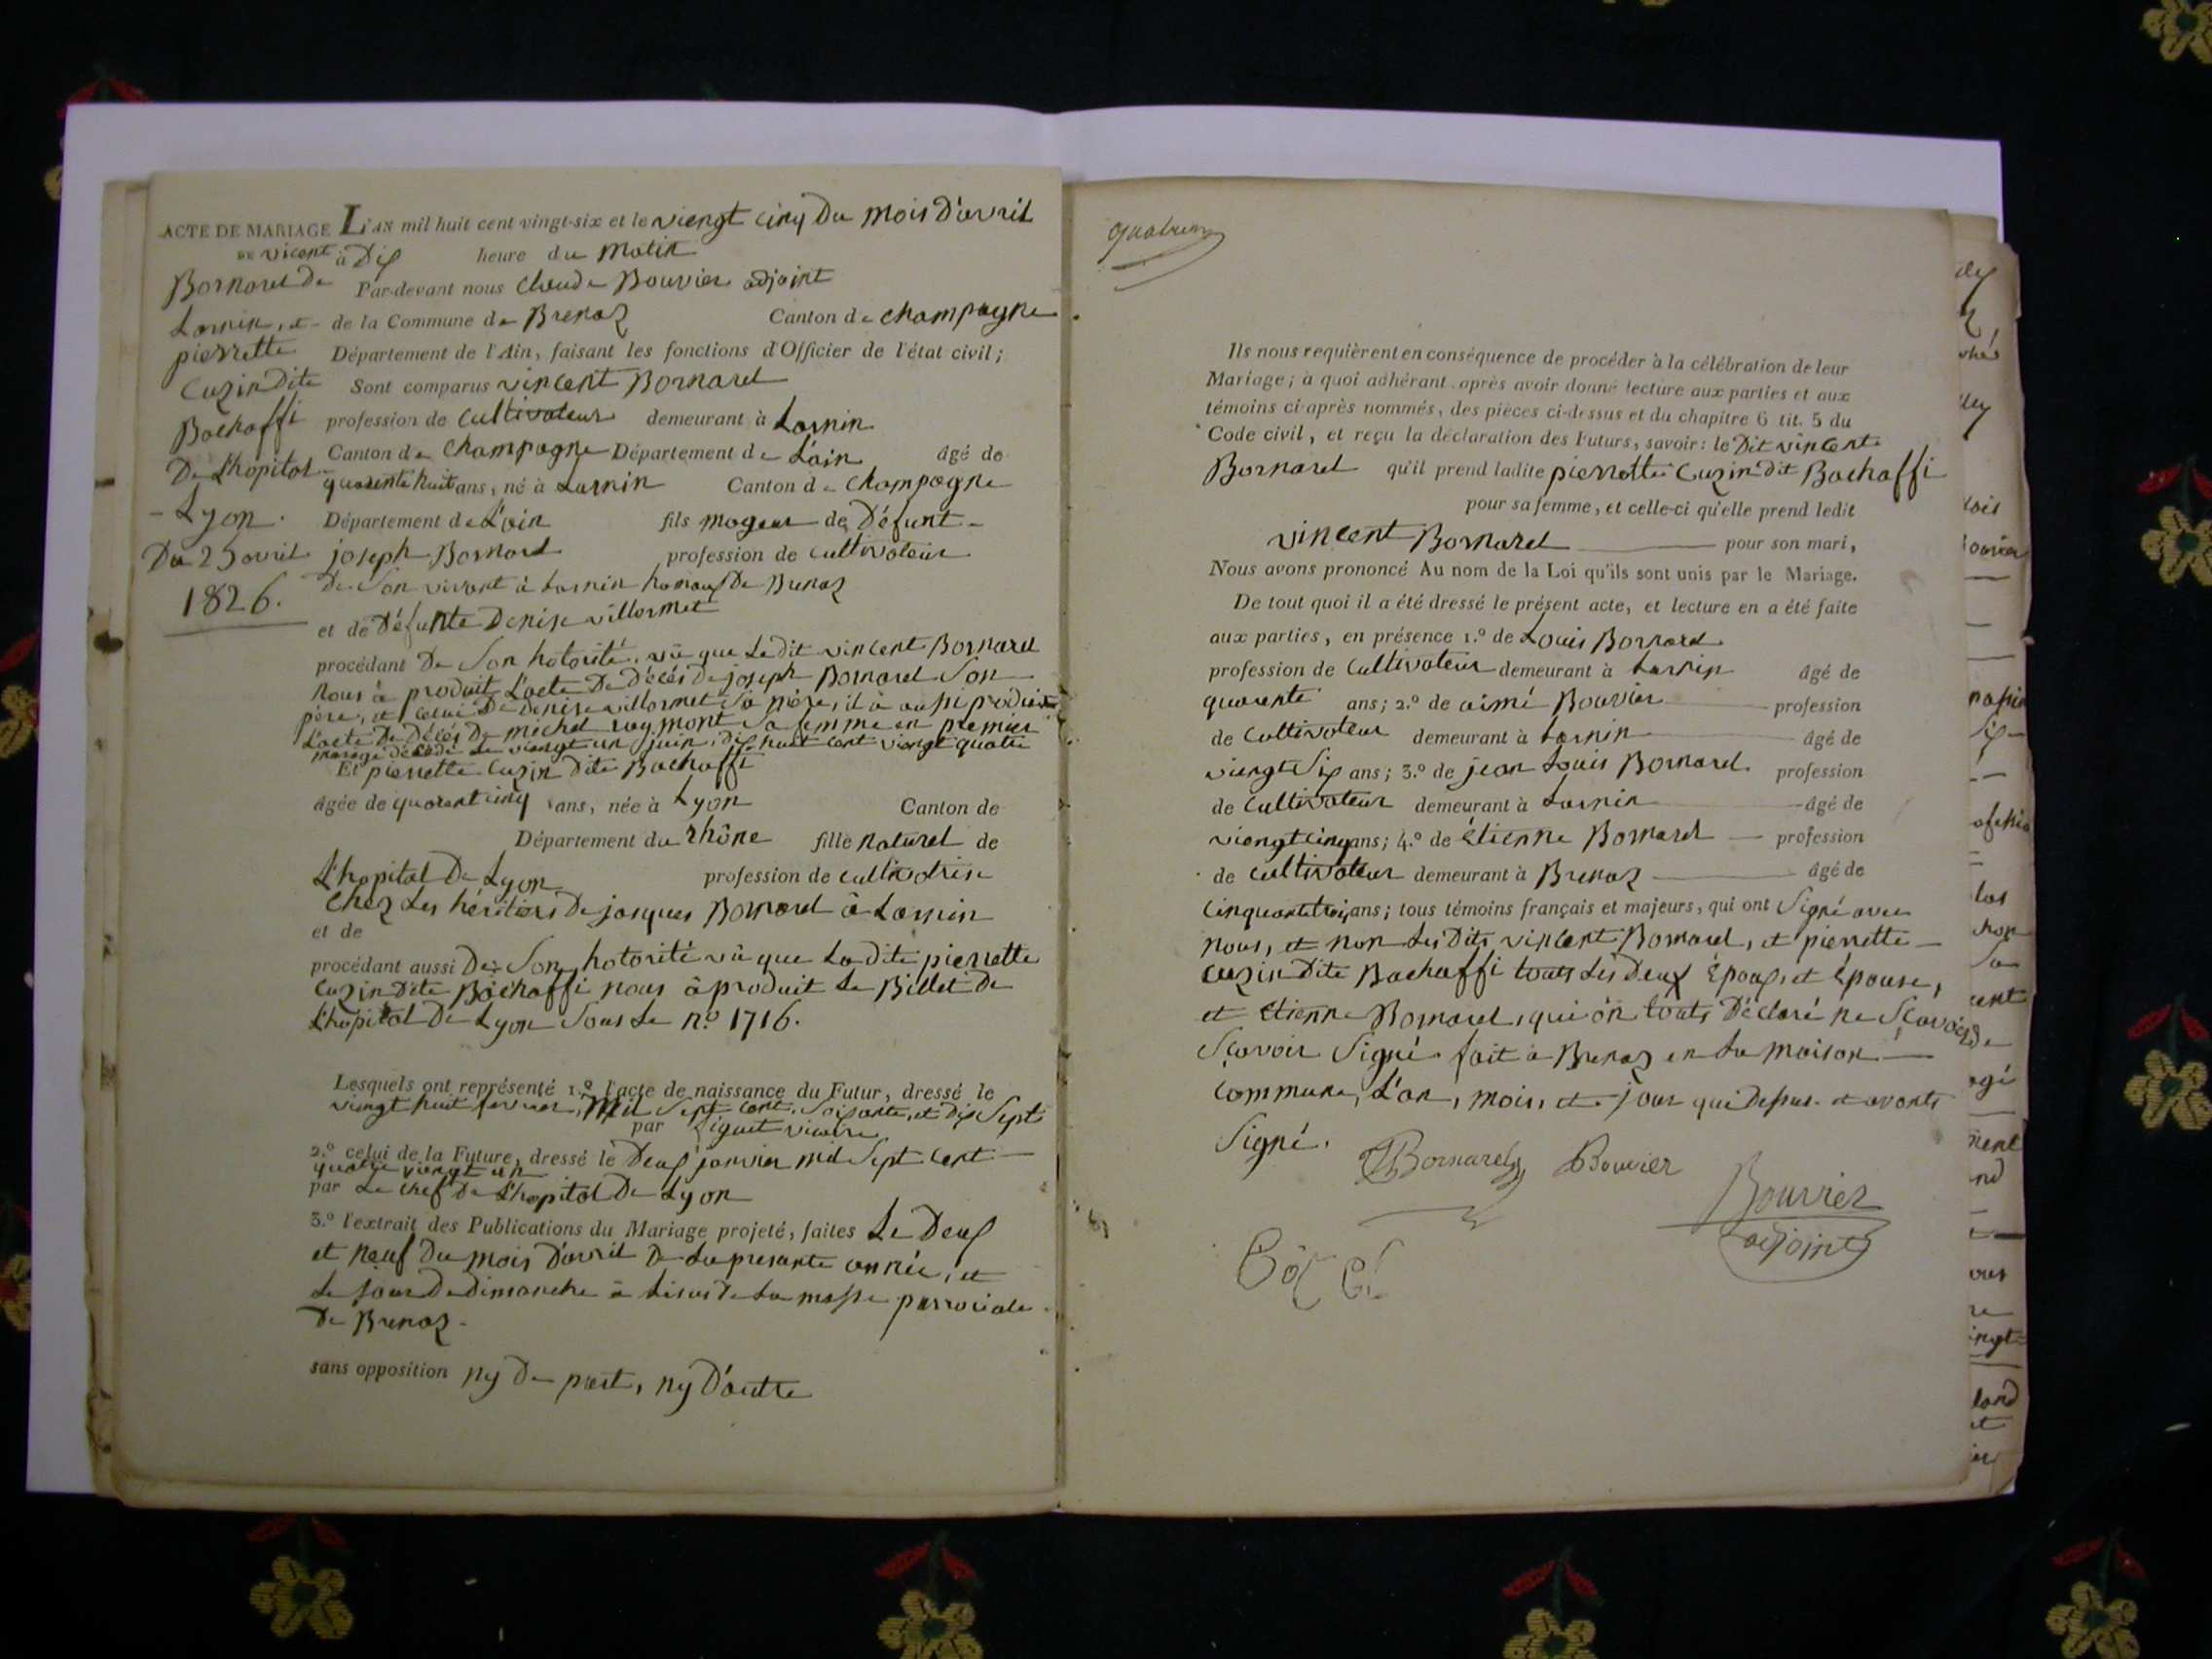 ACTE DE MARIAGE L'AN mil huit cent vingt-six et le viengt cinq Du mois D'avril
DE vicent à Dix heure du matin
Bornarel De Par-devant nous Claude Bouvier adjoint
Larnin, et de la Commune de Brenaz Canton de champagne
pierrette Département de l'Ain, faisant les fonctions d'Officier de l'état civil;
Cuzin Dite Sont comparus vincent Bornarel
Bachaffi profession de Cultivateur demeurant à Larnin
De L'hopital Canton de Champagne Département de L'ain âgé de
quarente huit ans, né à Larnin Canton de Champagne
- Lyon. Département de L'ain fils mageur de Défunt -
Du 25 avril joseph Bornarel profession de cultivateur
1826. De Son vivant à Larnin hamaux De Brenaz
et de Défunte Denise villermet
procédant De Son hotorité. vû que Le dit vincent Bornarel
nous à produit L'acte De Décés De joseph Bornarel Son
père, et celui De Denise villermet Sa mère, il à aussi produit
L'acte De Décés De michel raymont Sa femme en premier
mariage décédé Le viengt un juin, dix huit cent viengt quatre
Et pierrette Cuzin Dite Bachaffi
âgée de quarent cinq ans, née à Lyon Canton de
Département du rhône fille naturel de
L'hopital De Lyon profession de cultivatrise
Chez Les héritiers De jacques Bornarel à Larnin
et de
procédant aussi De Son hotorité vû que La dite pierrette
Cuzin Dite Bachaffi nous à produit Le Billet De
L'hopital De Lyon Sous Le n.º 1716.
Lesquels ont représenté 1.º l'acte de naissance du Futur, dressé le
viengt huit fevrier, mil Sept cent Soisante, et dix Sept
par vicaire
2.º celui de la Future, dressé le Deux janvier mil Sept cent
quatre viengt un
par Le Chef De L'hopital De Lyon
3.º l'extrait des Publications du Mariage projeté, faites Le Deux
et neuf Du mois D'avril De La presante année, et
Le jour De dimanche à Lisus De La masse parroiciale
De Brenaz.
sans opposition ny De part, ny D'autre
Ils nous requièrent en conséquence de procéder à la célébration de leur
Mariage; à quoi adhérant, après avoir donné lecture aux parties et aux
témoins ci-après nommés, des pièces ci-dessus et du chapitre 6 tit. 5 du
Code civil, et reçu la déclaration des Futurs, savoir: le Dit vincent
Bornarel qu'il prend ladite pierrette Cuzin dit Bachaffi
pour sa femme, et celle-ci qu'elle prend ledit
vincent Bornarel pour son mari,
Nous avons prononcé Au nom de la Loi qu'ils sont unis par le Mariage.
De tout quoi il a été dressé le présent acte, et lecture en a été faite
aux parties, en présence 1.º de Louis Bornarel
profession de Cultivateur demeurant à Larnin âgé de
quarente ans; 2.º de aimé Bouvier profession
de Cultivateur demeurant à Larnin âgé de
viengt Six ans; 3.º de jean Louis Bornarel profession
de Cultivateur demeurant à Larnin âgé de
viengt cinq ans; 4.º de Étienne Bornarel profession
de Cultivateur demeurant à Brenaz âgé de
Cinquante trois ans; tous témoins français et majeurs, qui ont Signé avec
nous, et non Les Dits vincent Bornarel, et pierrette
Cuzin Dite Bachaffi touts Les Deux Époux, et Épouse,
et etienne Bornarel, qui on touts Déclaré ne Scavoir De
Scavoir Signé. fait à Brenaz en La maison
Commune, L'an, mois, et jour que Dessus et avonts
Signé.
Bornarel Bouvier
Bouvier
adjoint